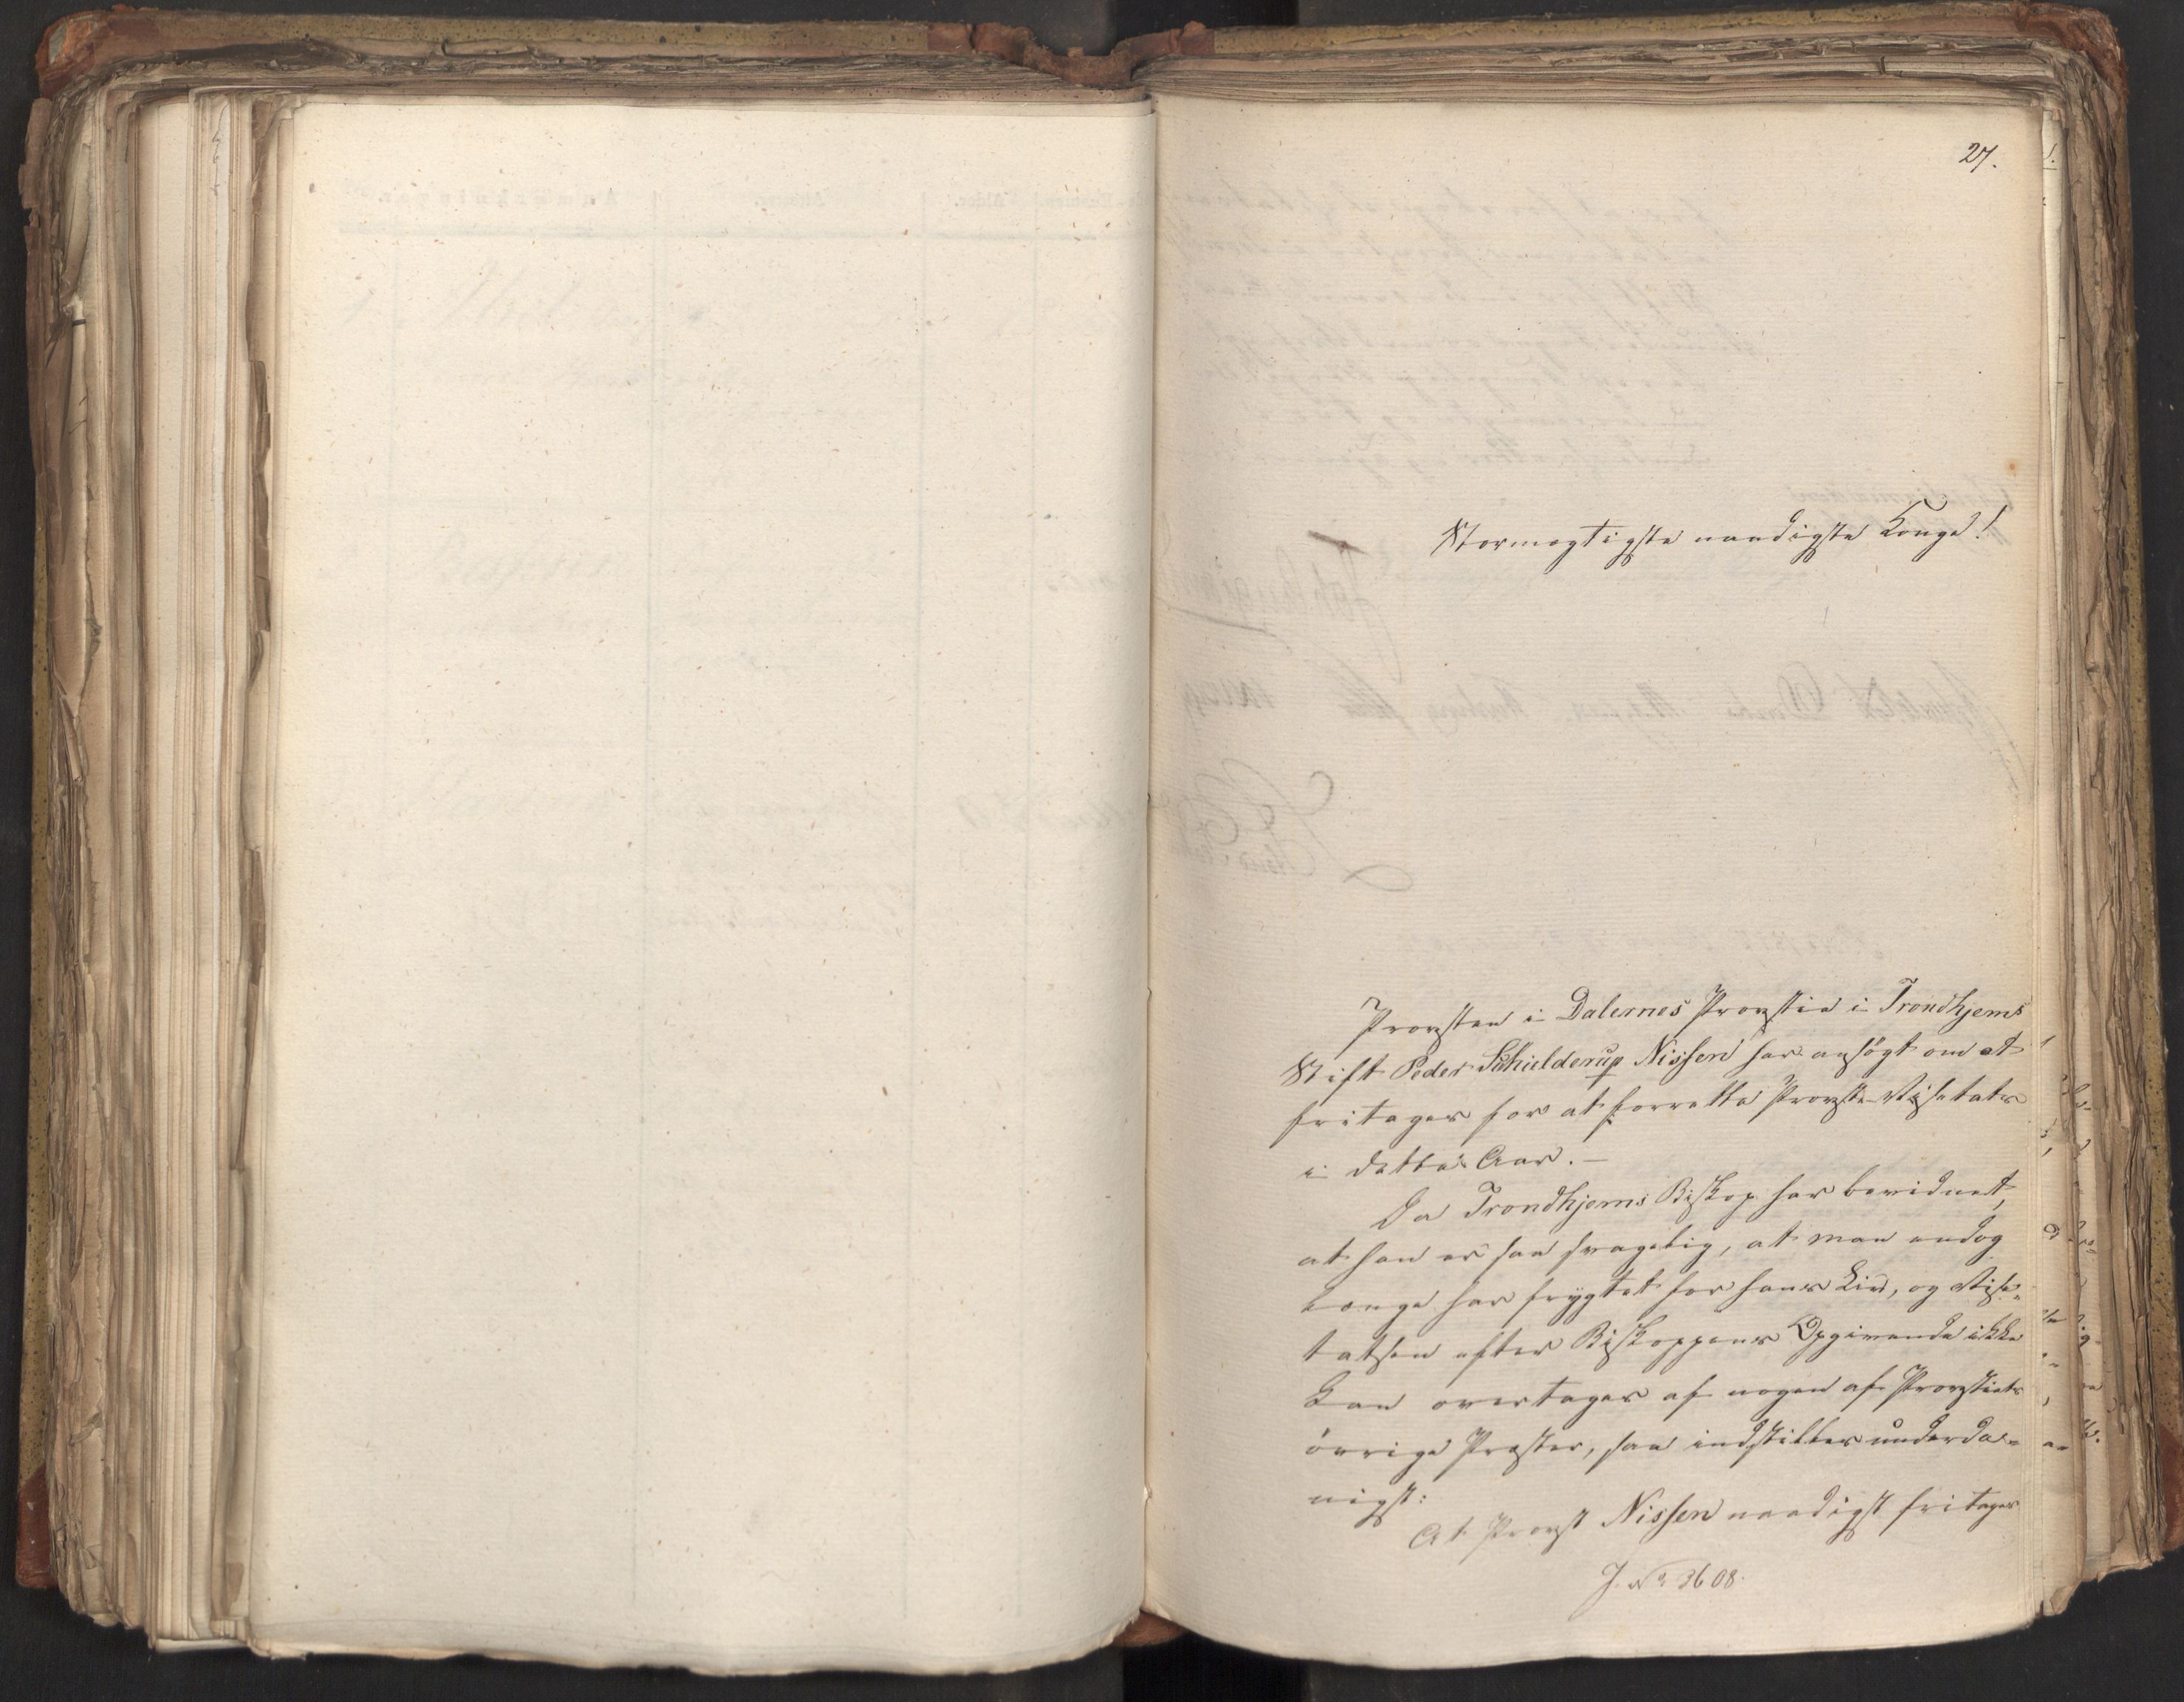 27.
Stormægtigste naadigste Konge!
Provsten i Dalernes Provstie i Trondhjems
Stift Peder Schielderup Nissen har ansögt om at
fritages for at forrette Provste-Visitats
i dette Aar.-
Da Trondhjems Biskop har bevidnet,
at han er saa svagelig, at man endog
længe har frygtet for hans Liv, og Visi-
tatsen efter Biskoppens Opgivende ikke
kan overtages af nogen af Provstiets
övrige Præster, saa indstilles underda-
nigst:
At Provst Nissen naadigst fritages
J. No 3608.